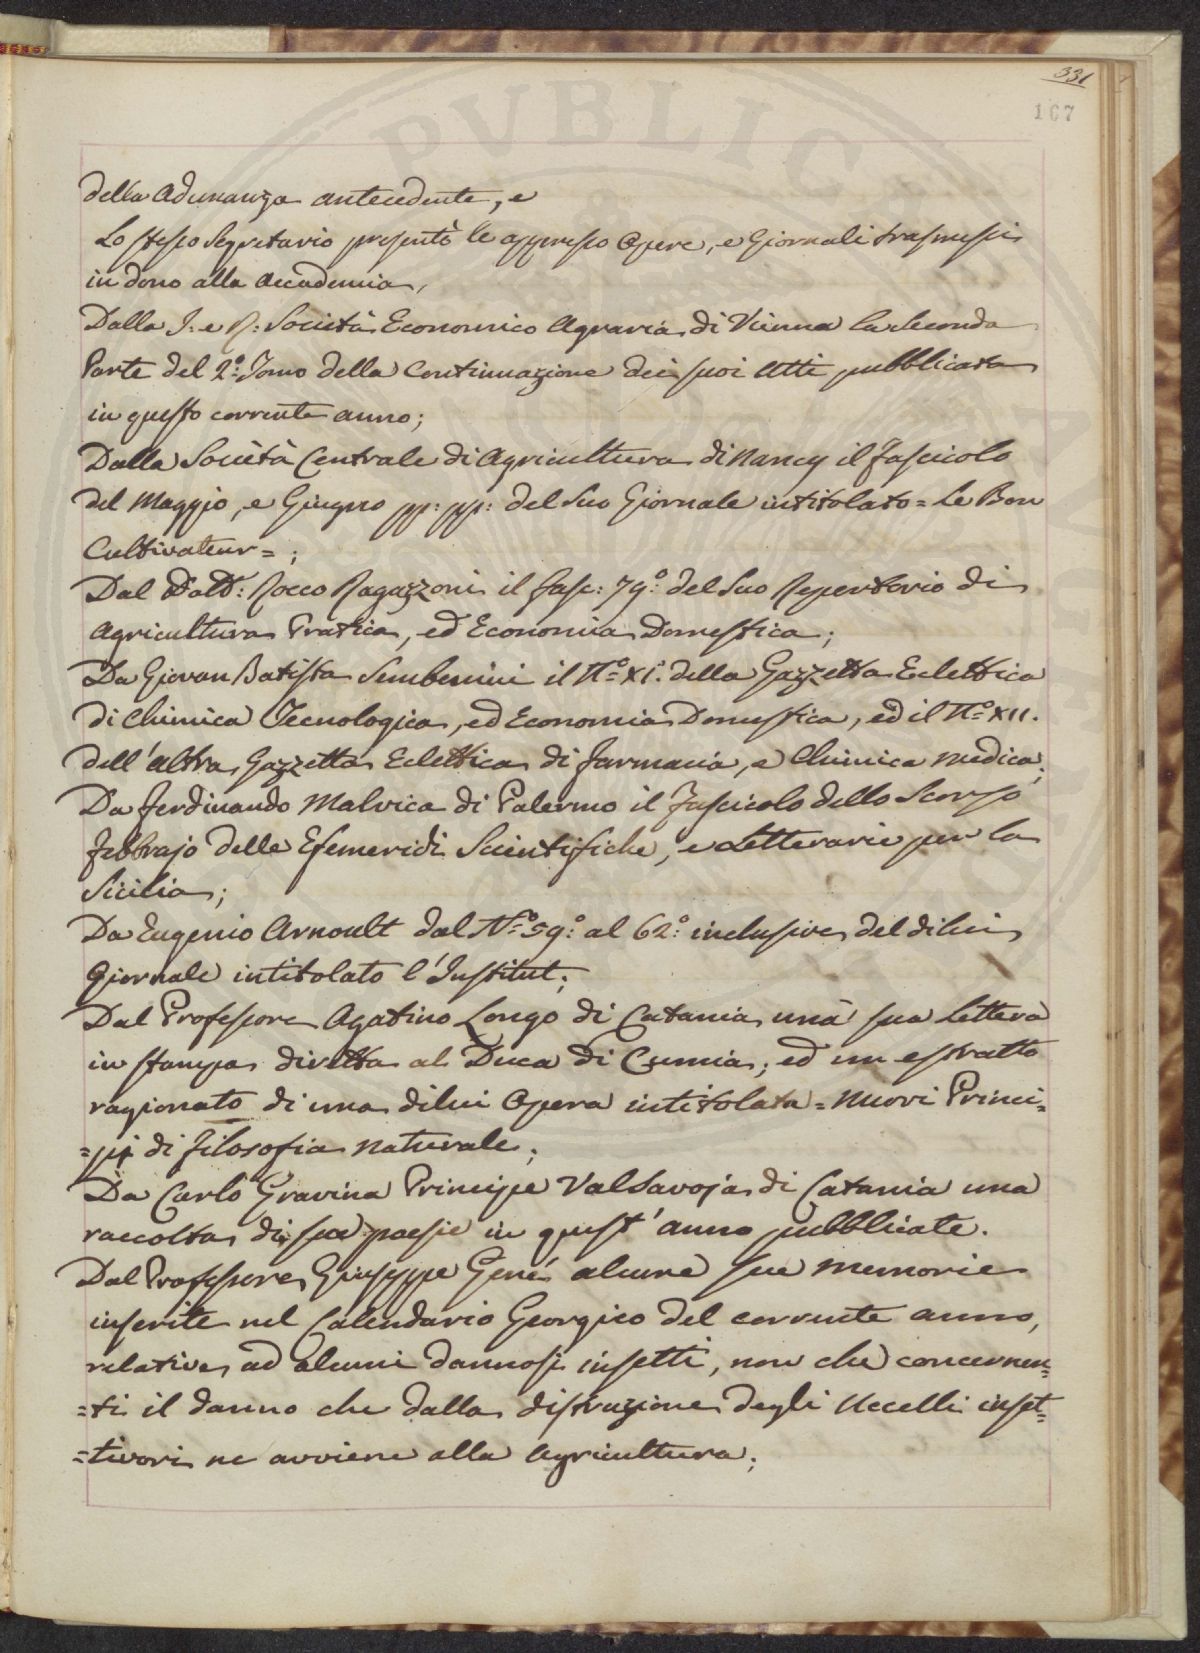 331
167
PVBLIC
della Adunanza antecedente, e
Lo stesso Segretario presentò le appresso Opere, e Giornali trasmessi
in dono alla Accademia,
Dalla I: e R: Società Economico Agraria di Vienna la Seconda
Parte del 2:° Tomo della Continuazione dei suoi Atti pubblicata
in questo corrente anno;
Dalla Società Centrale di Agricultura di Nancy il Fascicolo
del Maggio, e Giugno pp: pp: del Suo Giornale intitolato = Le Bon
Cultivateur = ;
Dal Dott: Rocco Ragazzoni il fasc: 79:° del Suo Repertorio di
Agricultura Pratica, ed Economia Domestica;
Da Giovan Batista Sembenini il N:° XI: della Gazzetta Eclettica
di Chimica Tecnologica, ed Economia Domestica, ed il N:° XII.
dell'altra Gazzetta Eclettica di farmacia, e Chimica medica;
Da Ferdinando Malvica di Palermo il Fascicolo dello Scorso
febbrajo delle Efemeridi Scientifiche, e Letterarie per la
Sicilia;
Da Eugenio Arnoult dal N:° 59:° al 62:° inclusive del di lui
Giornale intitolato l'Institut;
Dal Professore Agatino Longo di Catania una sua Lettera
in stampa diretta al Duca di Cumia; ed un estratto
ragionato di una di lui Opera intitolata = Nuovi Princi=
=pj di filosofia naturale;
Da Carlo Gravina Principe Valsavoja di Catania una
raccolta di sue poesie in quest'anno pubblicate.
Dal Professore Giuseppe Gené alcune sue Memorie
inserite nel Calendario Georgico del corrente anno,
relative ad alcuni dannosi insetti, non che concernen=
=ti il danno che dalla distruzione degli Uccelli inset=
=tivori ne avviene alla Agricultura;